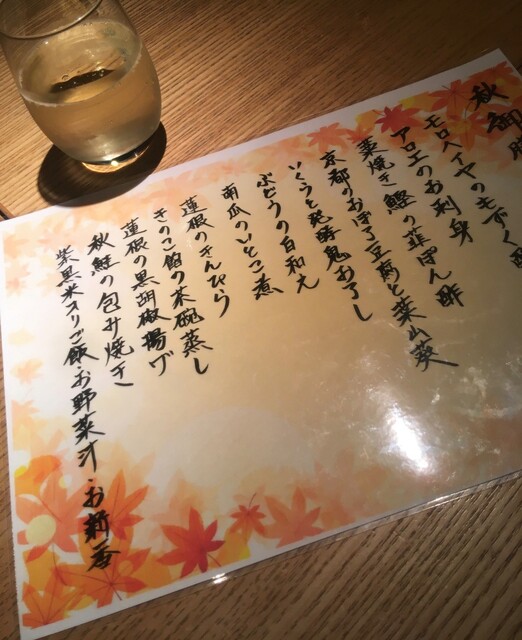 秋御膳
モロヘイヤのもずく酢
アロエのお刺身
藁焼き鰹の韮ぽん酢
京都のおぼろ豆腐と葉山葵
いくらと発酵鬼おろし
ぶどうの白和え
南瓜のいとこ煮
蓮根のきんぴら
きのこ餡の茶碗蒸し
蓮根の黒胡椒揚げ
秋鮭の包み焼き
紫黒米入りご飯・お野菜汁・お新香